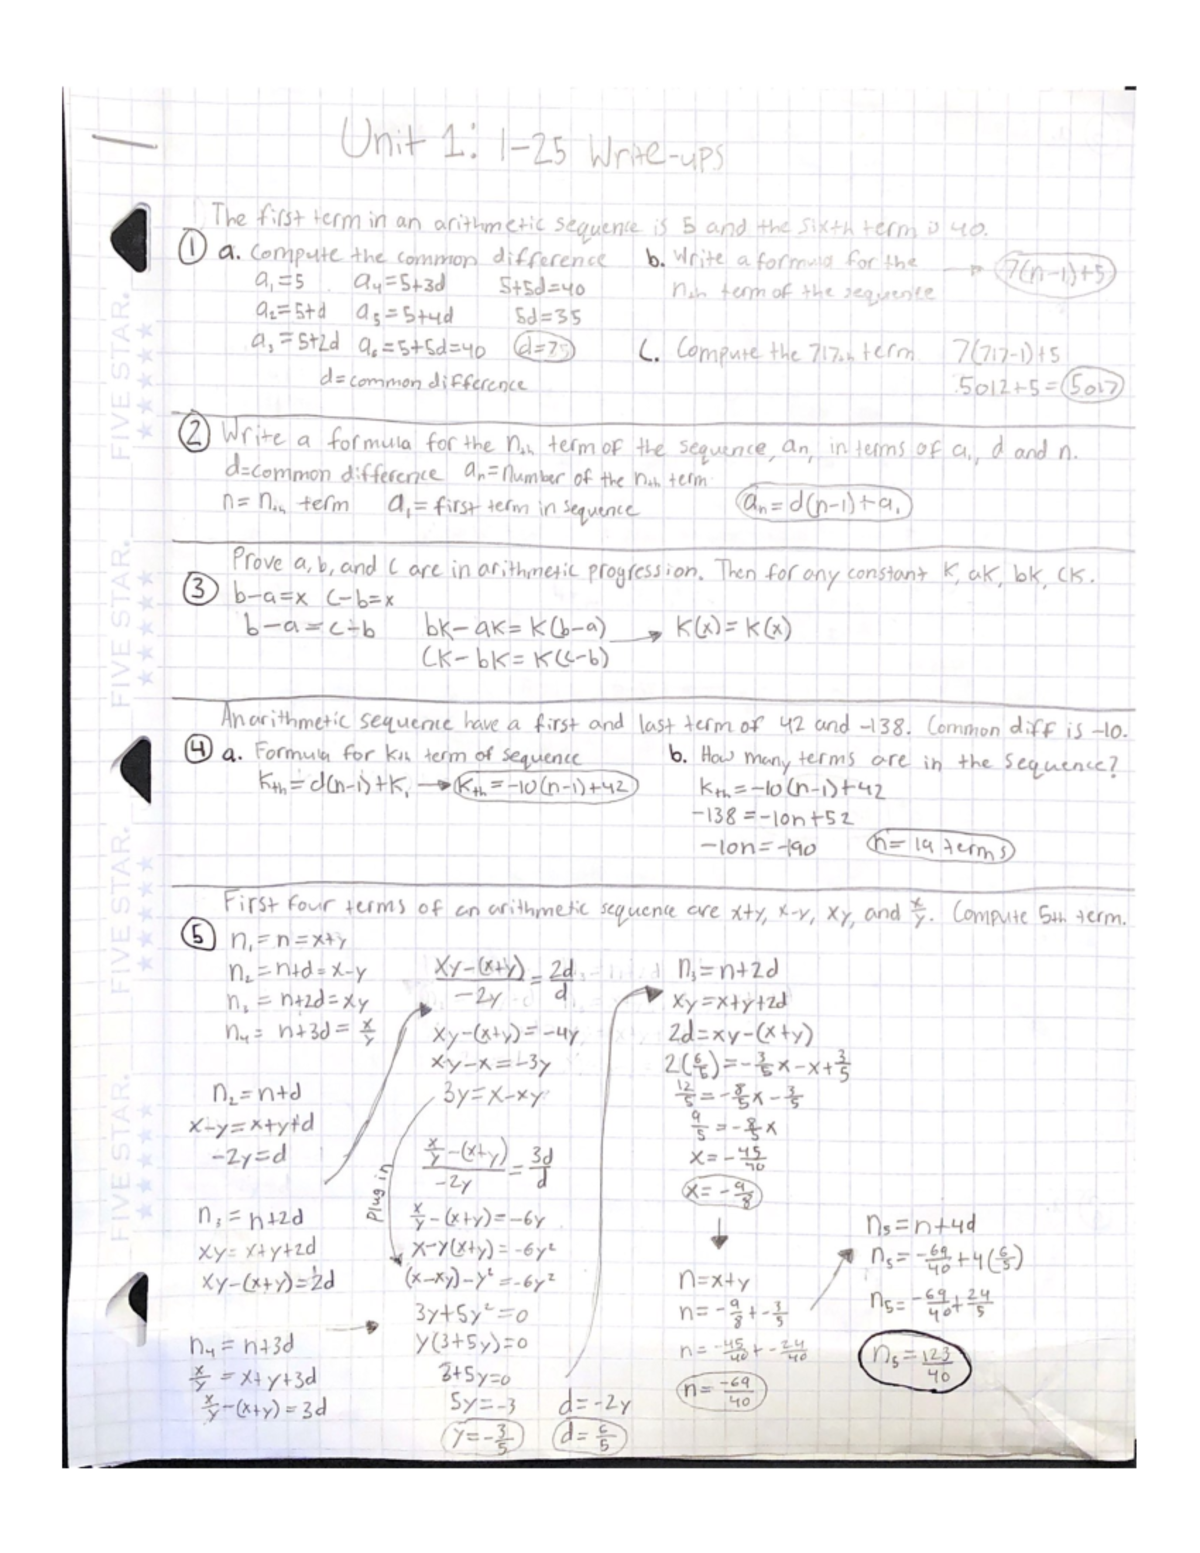 Unit 1: 1-25 Write-ups
The first term in an arithmetic sequence is 5 and the sixth term is 40.
① a. Compute the common difference
a₁=5 a₄=5+3d 5+5d=40
a₂=5+d a₅=5+4d 5d=35
a₃=5+2d a₆=5+5d=40 d=7
d=common difference
b. Write a formula for the → 7(n-1)+5
nth term of the sequence
c. Compute the 717th term 7(717-1)+5
5012+5=5017
② Write a formula for the nth term of the sequence, an, in terms of a₁, d and n.
d=common difference an=number of the nth term
n=nth term a₁=first term in sequence an=d(n-1)+a₁
Prove a, b, and c are in arithmetic progression. Then for any constant k, ak, bk, ck.
③ b-a=x c-b=x
b-a=c-b bk-ak=k(b-a) → k(x)=k(x)
ck-bk=k(c-b)
An arithmetic sequence have a first and last term of 42 and -138. Common diff is -10.
④ a. Formula for kth term of sequence
kth=d(n-1)+k₁ → kth=-10(n-1)+42
b. How many terms are in the sequence?
kth=-10(n-1)+42
-138=-10n+52
-10n=-190 n=19 terms
First four terms of an arithmetic sequence are x+y, x-y, xy, and x/y. Compute 5th term.
⑤ n₁=n=x+y
n₂=n+d=x-y
n₃=n+2d=xy
n₄=n+3d=x/y
n₂=n+d
x-y=x+y+d
-2y=d
n₃=n+2d
xy=x+y+2d
xy-(x+y)=2d
n₄=n+3d
x/y=x+y+3d
x/y-(x+y)=3d
(xy-(x+y))/-2y=2d/d
xy-(x+y)=-4y
xy-x=-3y
3y=x-xy
Plug in
(x/y-(x+y))/-2y=3d/d
x/y-(x+y)=-6y
x-y(x+y)=-6y²
(x-xy)-y²=-6y²
3y+5y²=0
y(3+5y)=0
3+5y=0
5y=-3 d=-2y
y=-3/5 d=6/5
n₃=n+2d
xy=x+y+2d
2d=xy-(x+y)
2(6/5)=-3/5x-x+3/5
12/5=-8/5x-3/5
9/5=-8/5x
x=-45/40
x=-9/8
n=x+y
n=-9/8+-3/5
n=-45/40+-24/40
n=-69/40
n₅=n+4d
n₅=-69/40+4(6/5)
n₅=-69/40+24/5
n₅=123/40
FIVE STAR.
FIVE STAR.
FIVE STAR.
FIVE STAR.